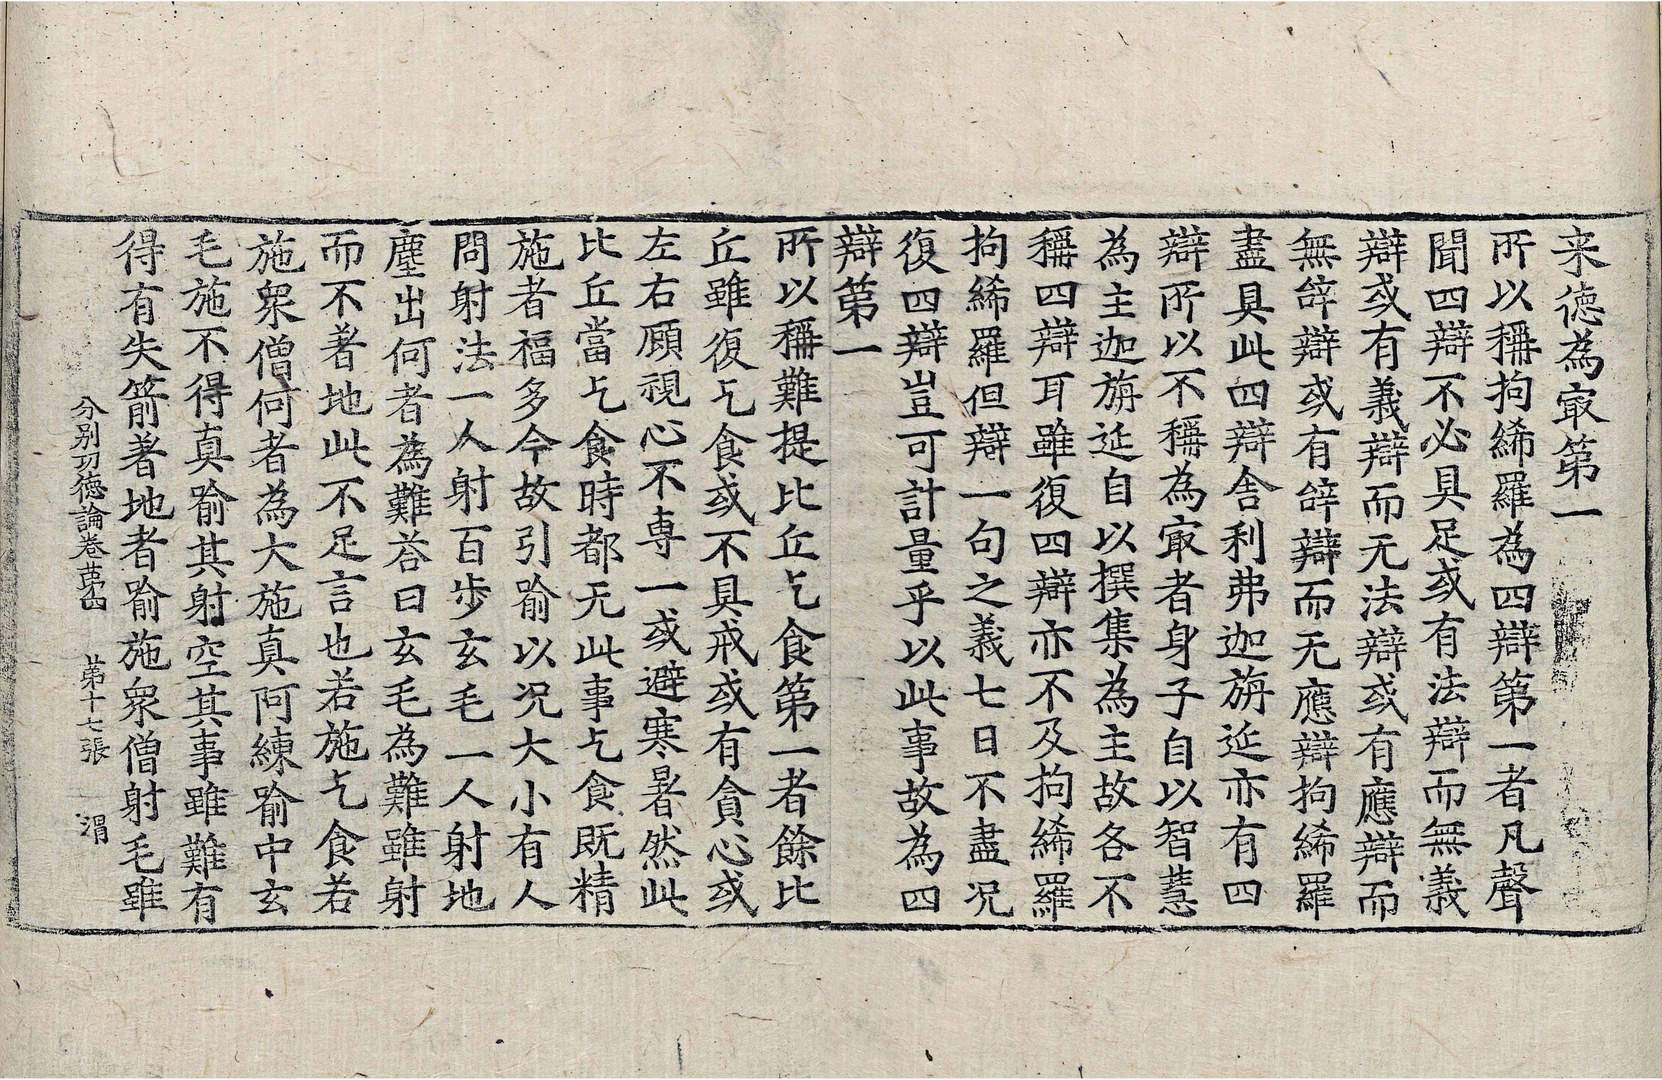 来德為㝡第一
所以稱拘絺羅為四辯第一者凡聲
聞四辯不必具足或有法辯而無義
辯或有義辯而无法辯或有應辯而
無辞辯或有辞辯而无應辯拘絺羅
盡具此四辯舍利弗迦旃延亦有四
辯所以不稱為㝡者身子自以智慧
為主迦旃延自以撰集為主故各不
稱四辯耳雖復四辯亦不及拘絺羅
拘絺羅但辯一句之義七日不盡况
復四辯豈可計量乎以此事故為四
辯第一
所以稱難提比丘乞食第一者餘比
丘雖復乞食或不具戒或有貪心或
左右顧視心不專一或避寒暑然此
比丘當乞食時都无此事乞食既精
施者福多今故引喻以况大小有人
問射法一人射百步玄毛一人射地
塵出何者為難荅曰玄毛為難雖射
而不著地此不足言也若施乞食若
施衆僧何者為大施真阿練喻中玄
毛施不得真喻其射空其事雖難有
得有失箭著地者喻施衆僧射毛雖
分别功德論卷苐四　苐十七張　渭